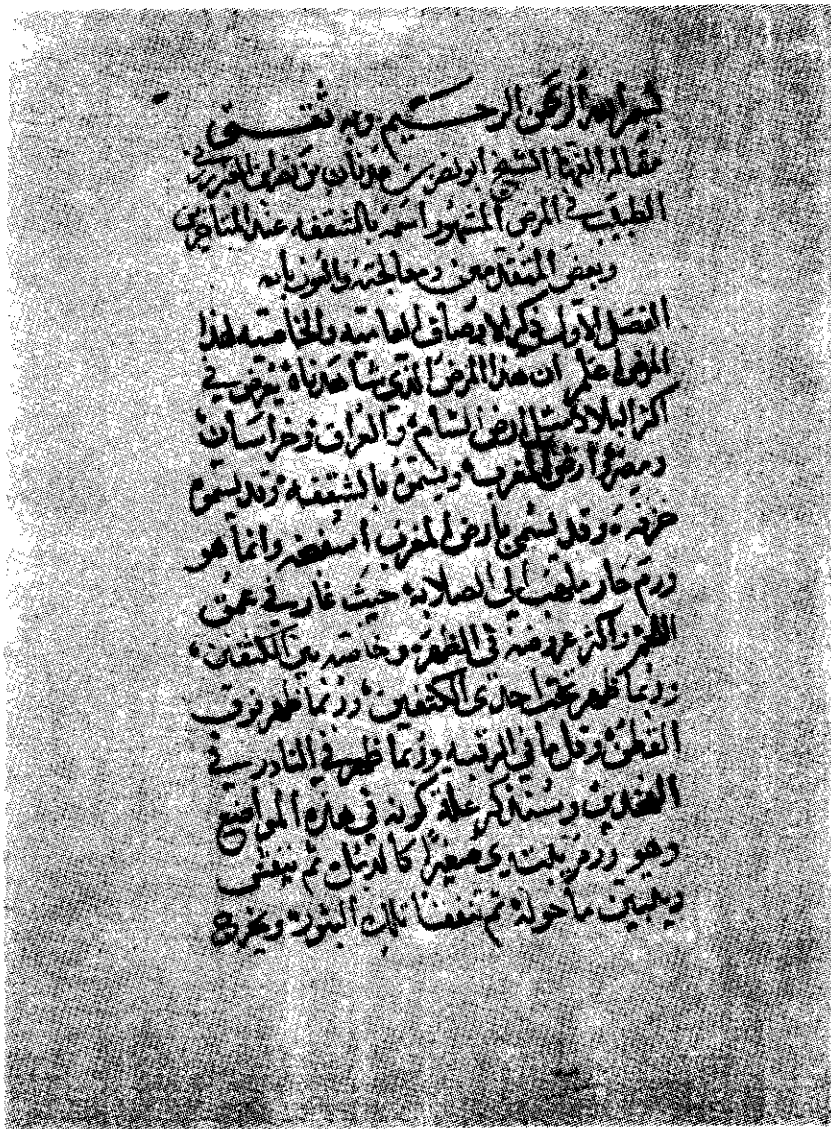 بسم الله الرحمن الرحيم وبه ثقتي
مقالة الفها الشيخ ابو نصر بن عدنان بن
الطبيب في المرض المشهور اسمه بالشقفه عند المتاخرين
وبعض المتقدمين ومعالجته
الفصل الاول في ذكر الاوصاف العاميه والخاصيه لهذا
المرض اعلم ان هذا المرض الذي شاهدناه يعرض في
اكثر البلاد مثل ارض الشام والعراق وخراسان
ومصر وارض المغرب ويسموه بالشقفه وقد يسموه
خزفه وقد تسمى بارض المغرب وانما هو
ورم حار ملتهب الى الصلابه حيث غار في عمق
واكثر عروضه في الظهر وخاصه بين الكتفين
وربما ظهر تحت احدى الكتفين وربما ظهر فوق
القطن وقل ما في الرقبه وربما ظهر في النادر في
الفخدين وسنذكر علة كونه في هذه المواضع
وهو ورم يبتدي صغيرا كالدبل ثم
ما حوله ثم تلك البثور ويخرج